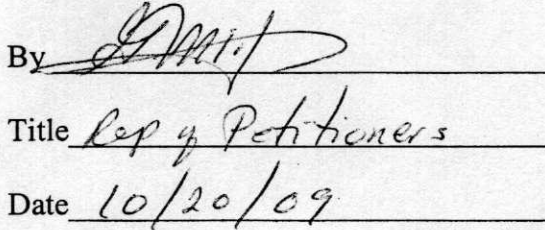 By
Title Rep of Petitioners
Date 10/20/09